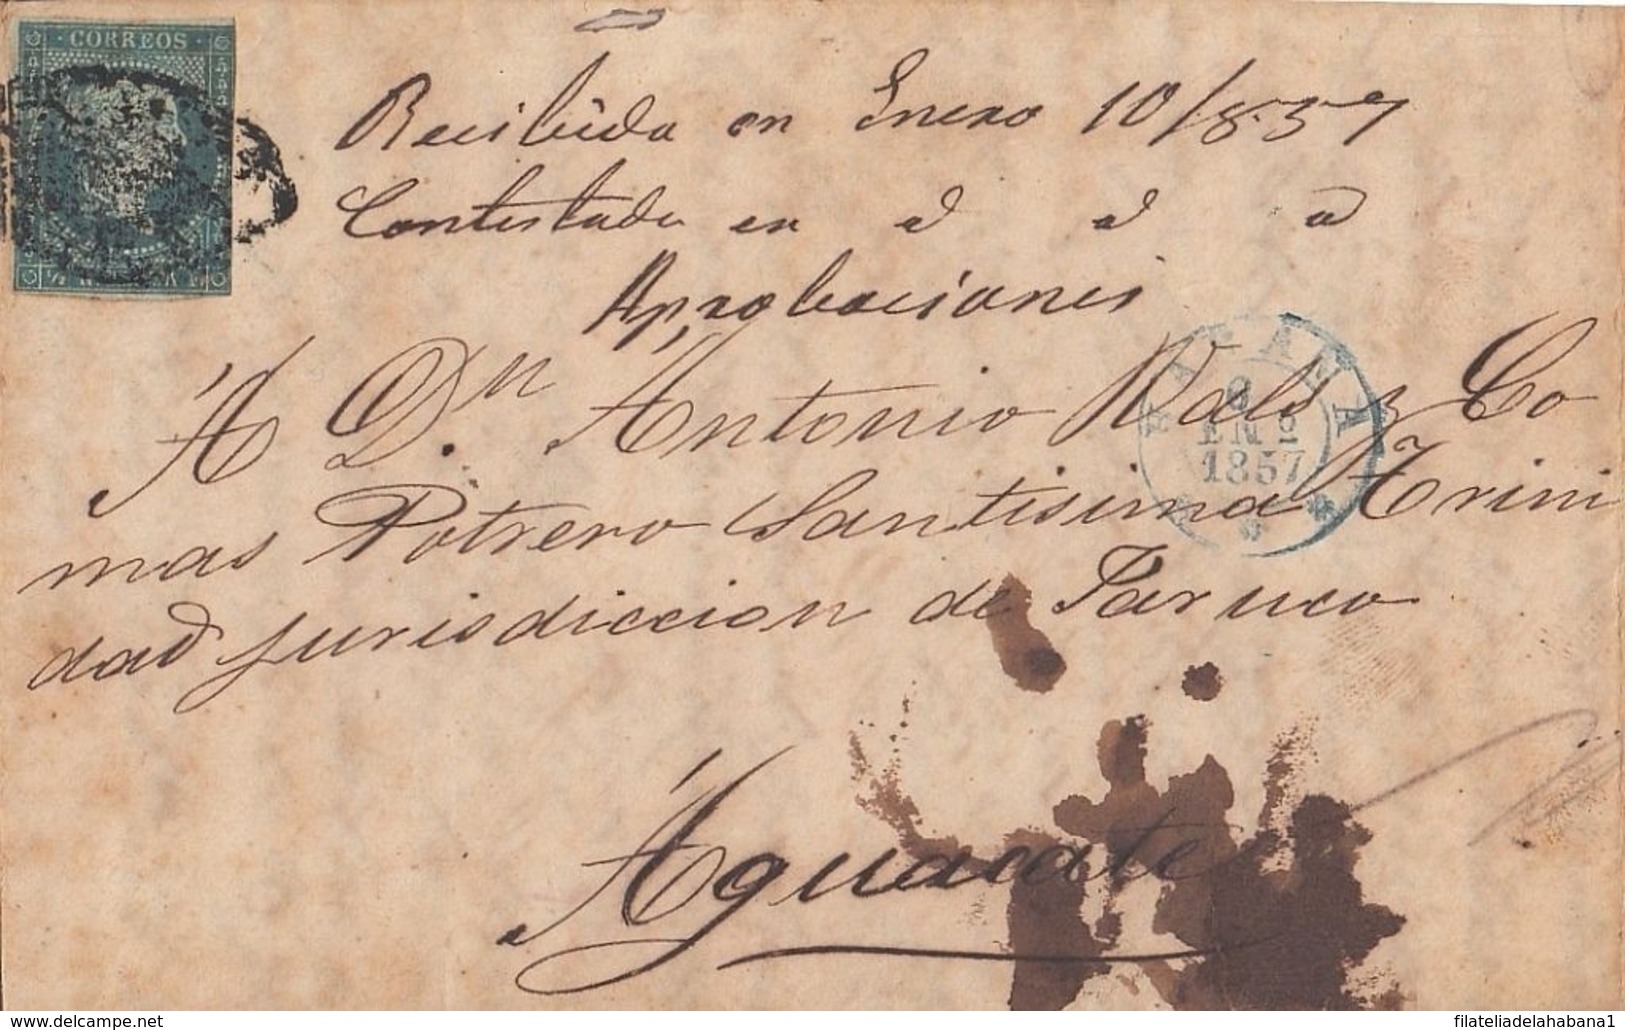 CORREOS
½ R. PLATA F.
Recibida en Enero 10/857
Contestada en d d d
Aprobaciones
A Dn. Antonio Vals y Co
mas Potrero Santisima Trini
dad jurisdiccion de Jaruco
Aguacate
HABANA
EN.º
1857
www.delcampe.net
filateliadelahabana1